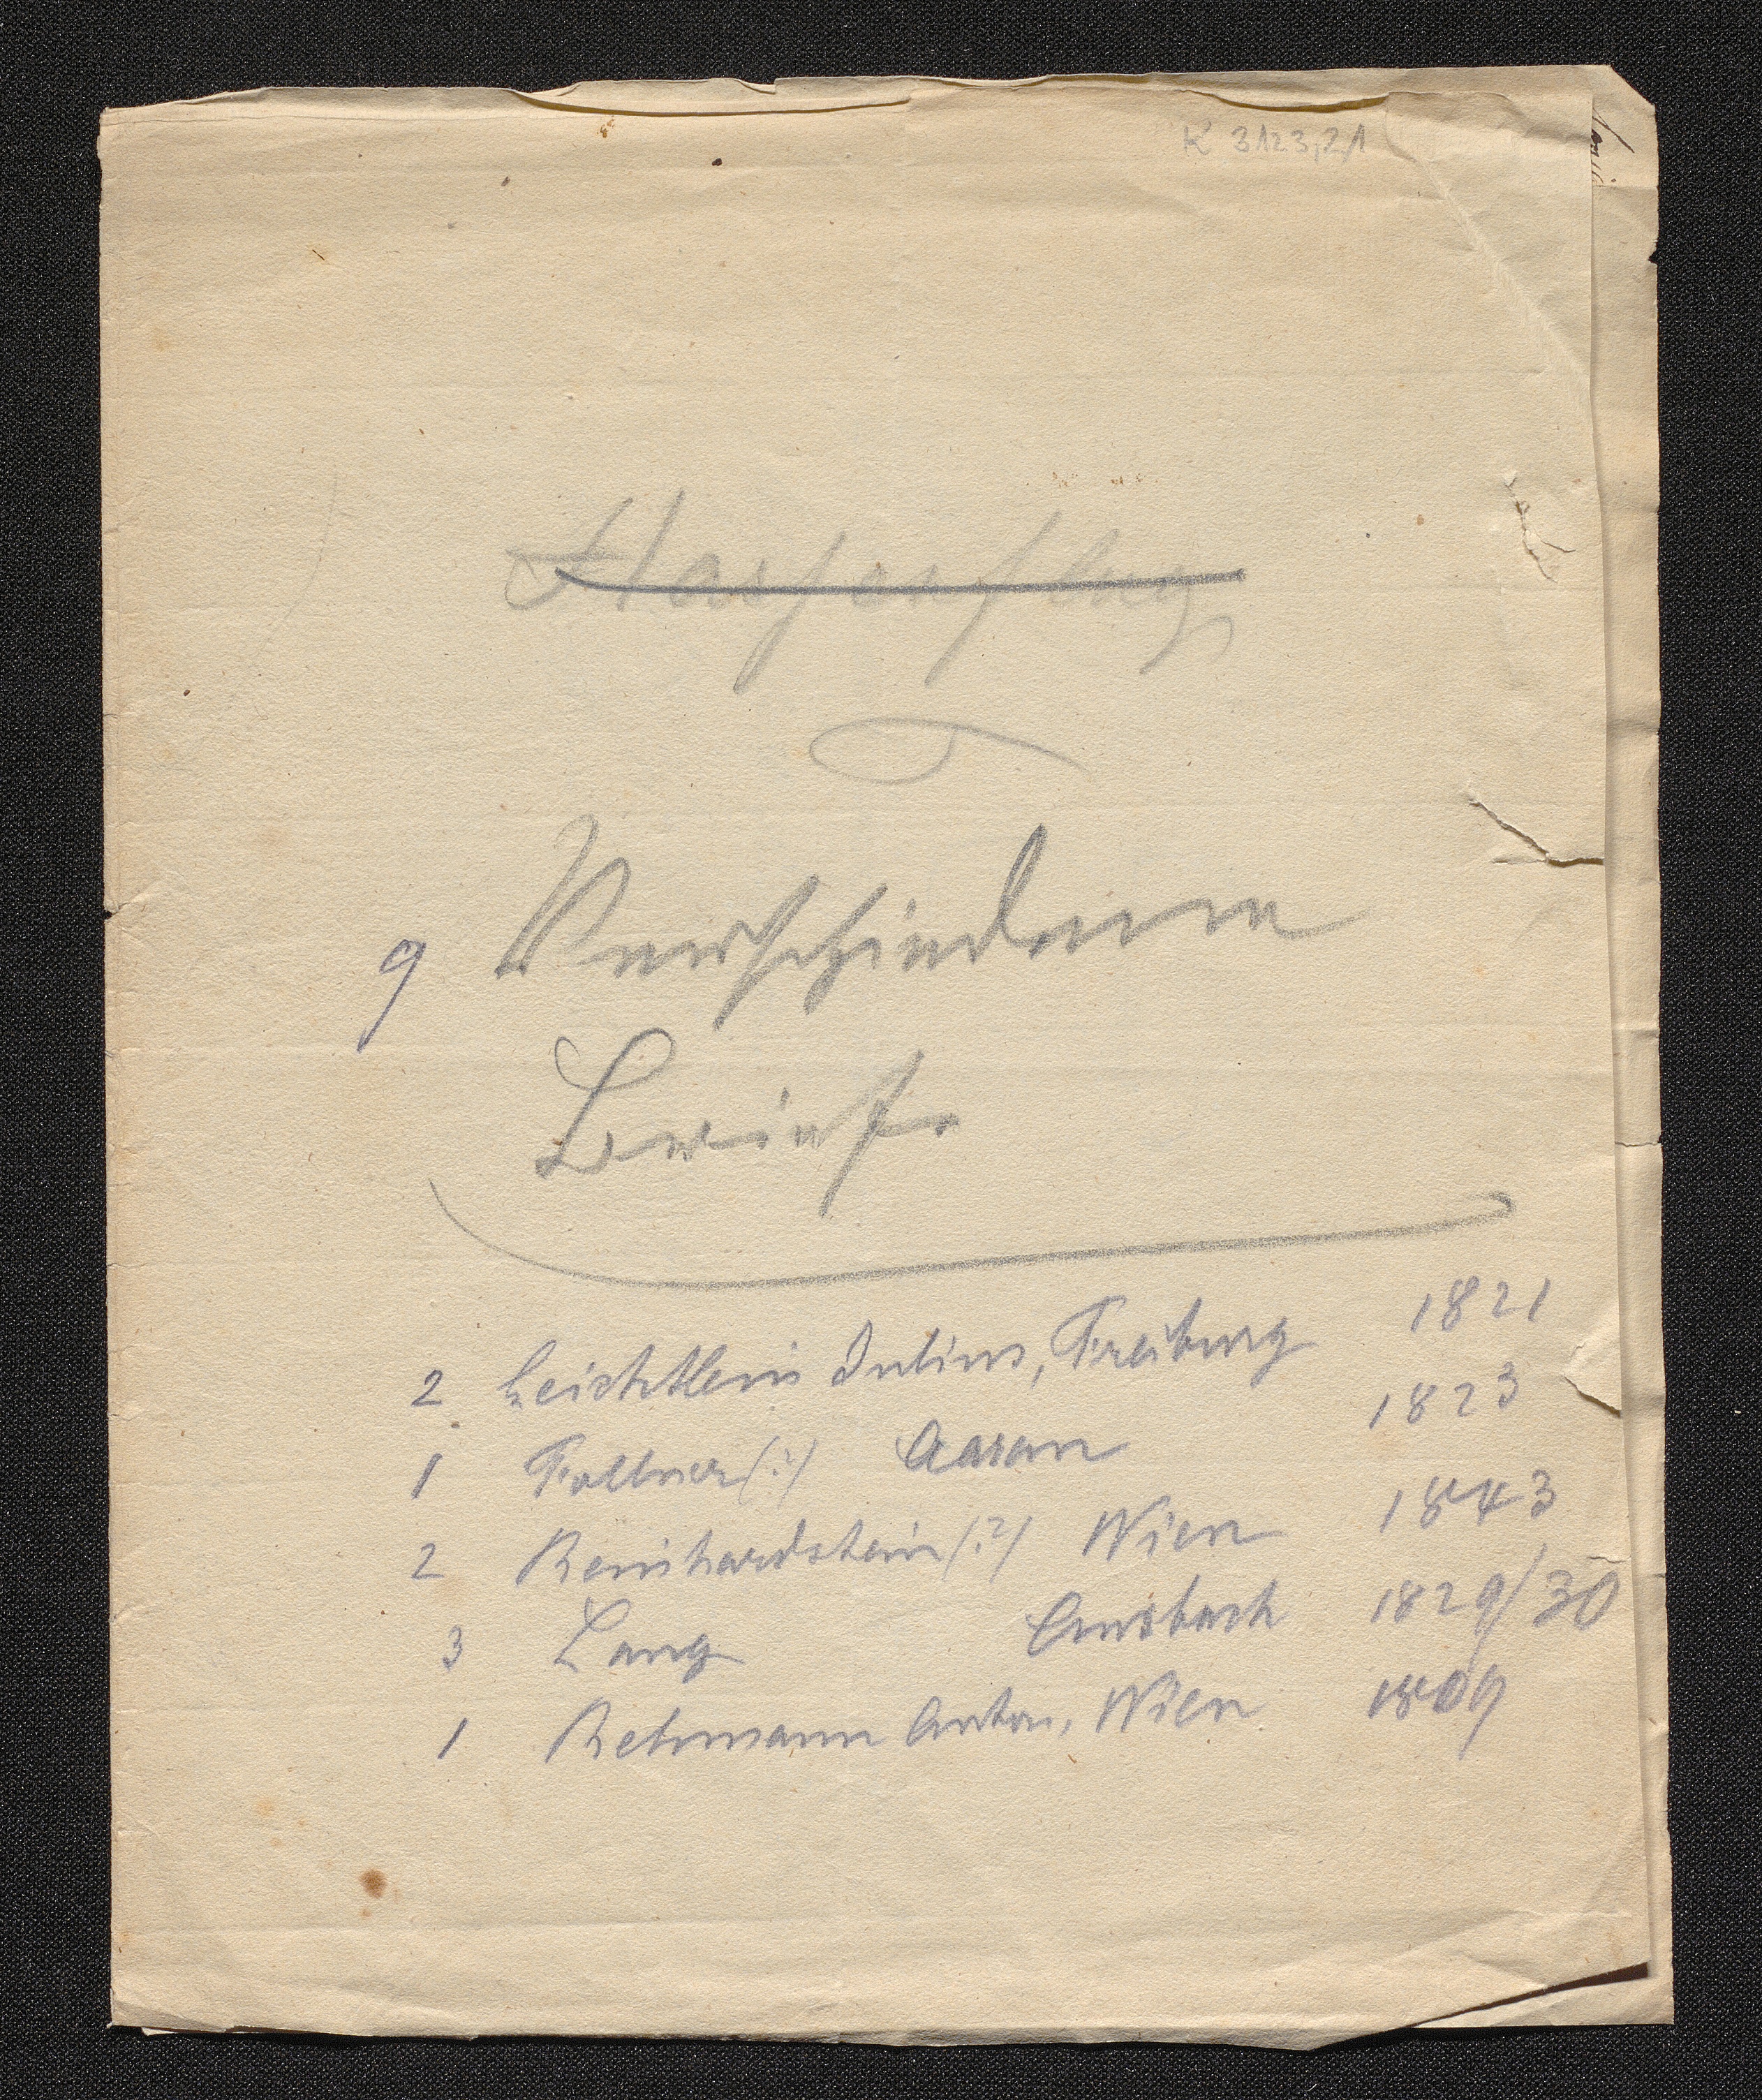 K 3123,2/1
Hassenpflug
9 Verschiedene
Briefe
2 Leichtlein Julius, Freiburg 1821
1 Follner(?) Aarau 1823
2 Reinhardstein(?) Wien 1843
3 Lang Ansbach 1829/30
1 Rehmann Anton, Wien 1809